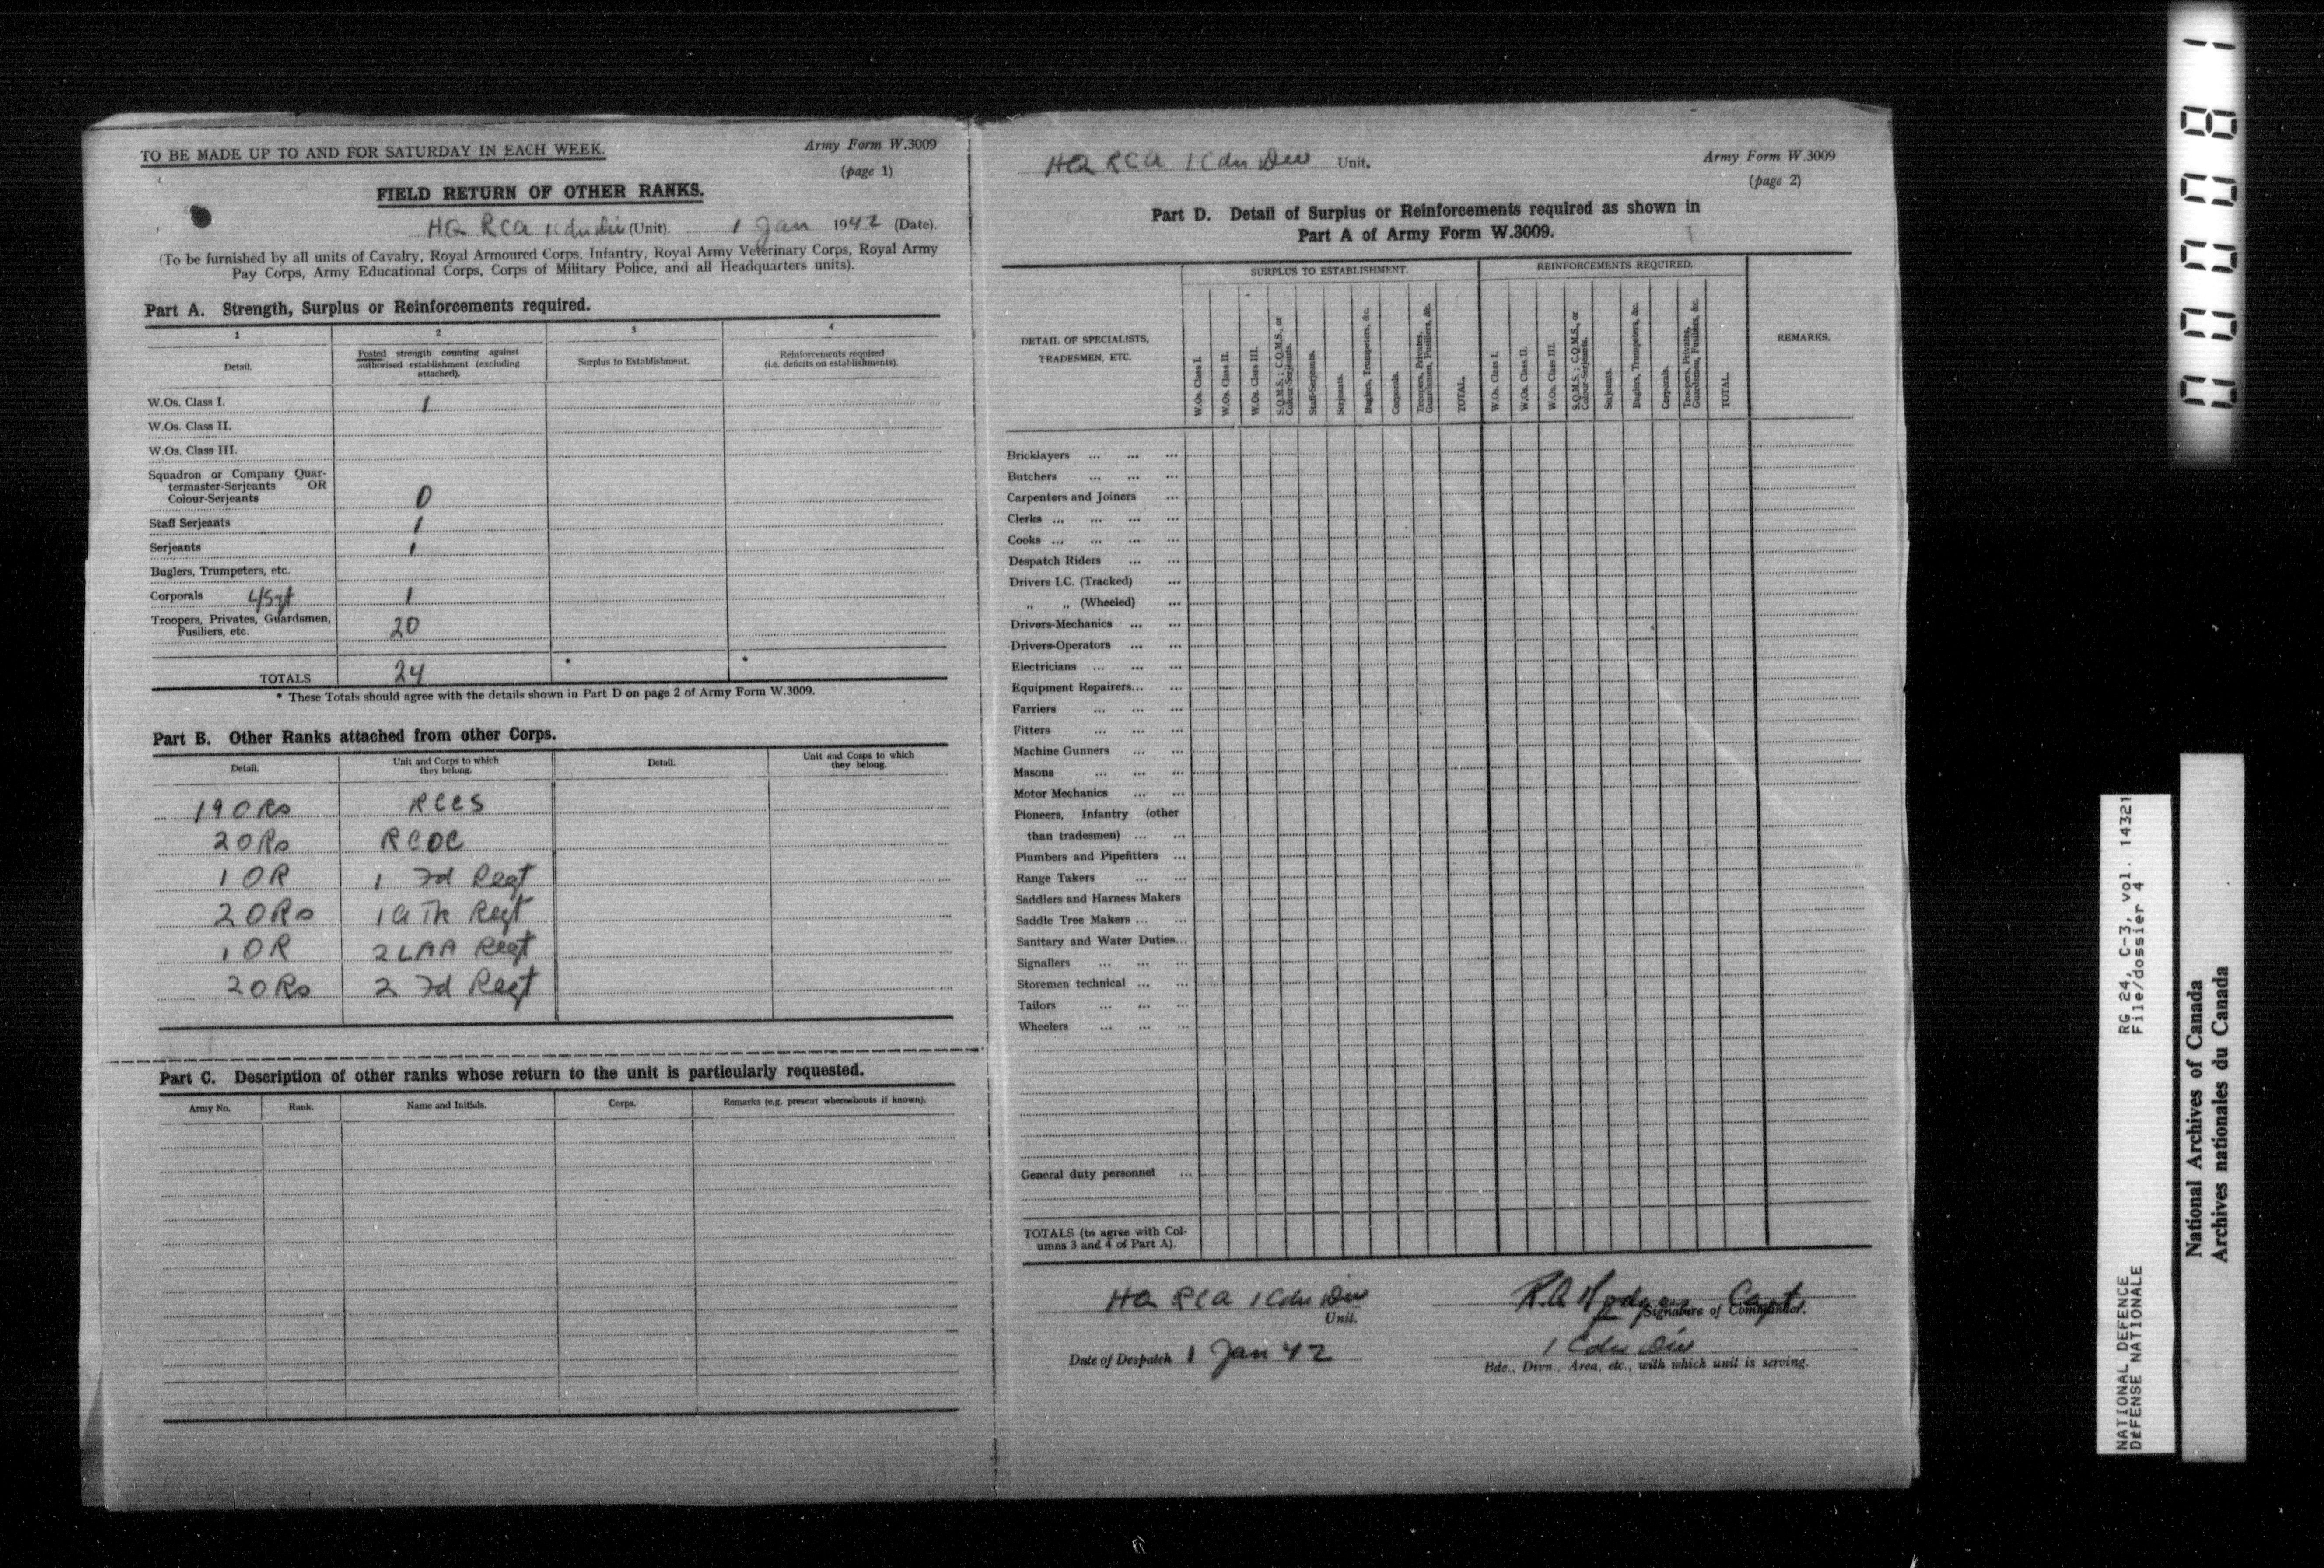 TO BE MADE UP TO AND FOR SATURDAY IN EACH WEEK.
Army Form W.3009
(page 1)
FIELD RETURN OF OTHER RANKS.
HQ RCA 1 Cdn Div (Unit). 1 Jan 1942 (Date).
(To be furnished by all units of Cavalry, Royal Armoured Corps, Infantry, Royal Army Veterinary Corps, Royal Army
Pay Corps, Army Educational Corps, Corps of Military Police, and all Headquarters units).
Part A. Strength, Surplus or Reinforcements required.
1 2 3 4
Detail.
Posted strength counting against
authorised establishment (excluding
attached).
Surplus to Establishment.
Reinforcements required
(i.e. deficits on establishments).
W.Os. Class I. 1
W.Os. Class II.
W.Os. Class III.
Squadron or Company Quar-
termaster-Serjeants OR
Colour-Serjeants 0
Staff Serjeants 1
Serjeants 1
Buglers, Trumpeters, etc.
Corporals L/Sgt 1
Troopers, Privates, Guardsmen,
Fusiliers, etc. 20
TOTALS 24 * *
* These Totals should agree with the details shown in Part D on page 2 of Army Form W.3009.
Part B. Other Ranks attached from other Corps.
Detail.
Unit and Corps to which
they belong.
Detail.
Unit and Corps to which
they belong.
19 ORs RCCS
2 ORs RCOC
1 OR 1 Fd Regt
2 ORs 1 A Tk Regt
1 OR 2 LAA Regt
2 ORs 2 Fd Regt
Part C. Description of other ranks whose return to the unit is particularly requested.
Army No. Rank. Name and Initials. Corps. Remarks (e.g. present whereabouts if known).
HQ RCA 1 Cdn Div Unit.
Army Form W.3009
(page 2)
Part D. Detail of Surplus or Reinforcements required as shown in
Part A of Army Form W.3009.
DETAIL OF SPECIALISTS,
TRADESMEN, ETC.
SURPLUS TO ESTABLISHMENT.
W.Os. Class I.
W.Os. Class II.
W.Os. Class III.
S.Q.M.S.; C.Q.M.S., or
Colour-Serjeants.
Staff-Serjeants.
Serjeants.
Buglers, Trumpeters, &c.
Corporals.
Troopers, Privates,
Guardsmen, Fusiliers, &c.
TOTAL.
REINFORCEMENTS REQUIRED.
W.Os. Class I.
W.Os. Class II.
W.Os. Class III.
S.Q.M.S.; C.Q.M.S., or
Colour-Serjeants.
Serjeants.
Buglers, Trumpeters, &c.
Corporals.
Troopers, Privates,
Guardsmen, Fusiliers, &c.
TOTAL.
REMARKS.
Bricklayers ... ... ...
Butchers ... ... ...
Carpenters and Joiners ...
Clerks ... ... ... ...
Cooks ... ... ... ...
Despatch Riders ... ...
Drivers I.C. (Tracked) ...
„ „ (Wheeled) ...
Drivers-Mechanics ... ...
Drivers-Operators ... ...
Electricians ... ... ...
Equipment Repairers... ...
Farriers ... ... ...
Fitters ... ... ...
Machine Gunners ... ...
Masons ... ... ...
Motor Mechanics ... ...
Pioneers, Infantry (other
than tradesmen) ... ...
Plumbers and Pipefitters ...
Range Takers ... ...
Saddlers and Harness Makers
Saddle Tree Makers ... ...
Sanitary and Water Duties...
Signallers ... ... ...
Storemen technical ... ...
Tailors ... ... ...
Wheelers ... ... ...
General duty personnel ...
TOTALS (to agree with Col-
umns 3 and 4 of Part A).
HQ RCA 1 Cdn Div
Unit.
R.A. Hodgson Capt
Signature of Commander.
Date of Despatch 1 Jan 42
1 Cdn Div
Bde., Divn., Area, etc., with which unit is serving.
00008 1
RG 24, C-3, vol. 14321
File/dossier 4
NATIONAL DEFENCE
DEFENSE NATIONALE
National Archives of Canada
Archives nationales du Canada